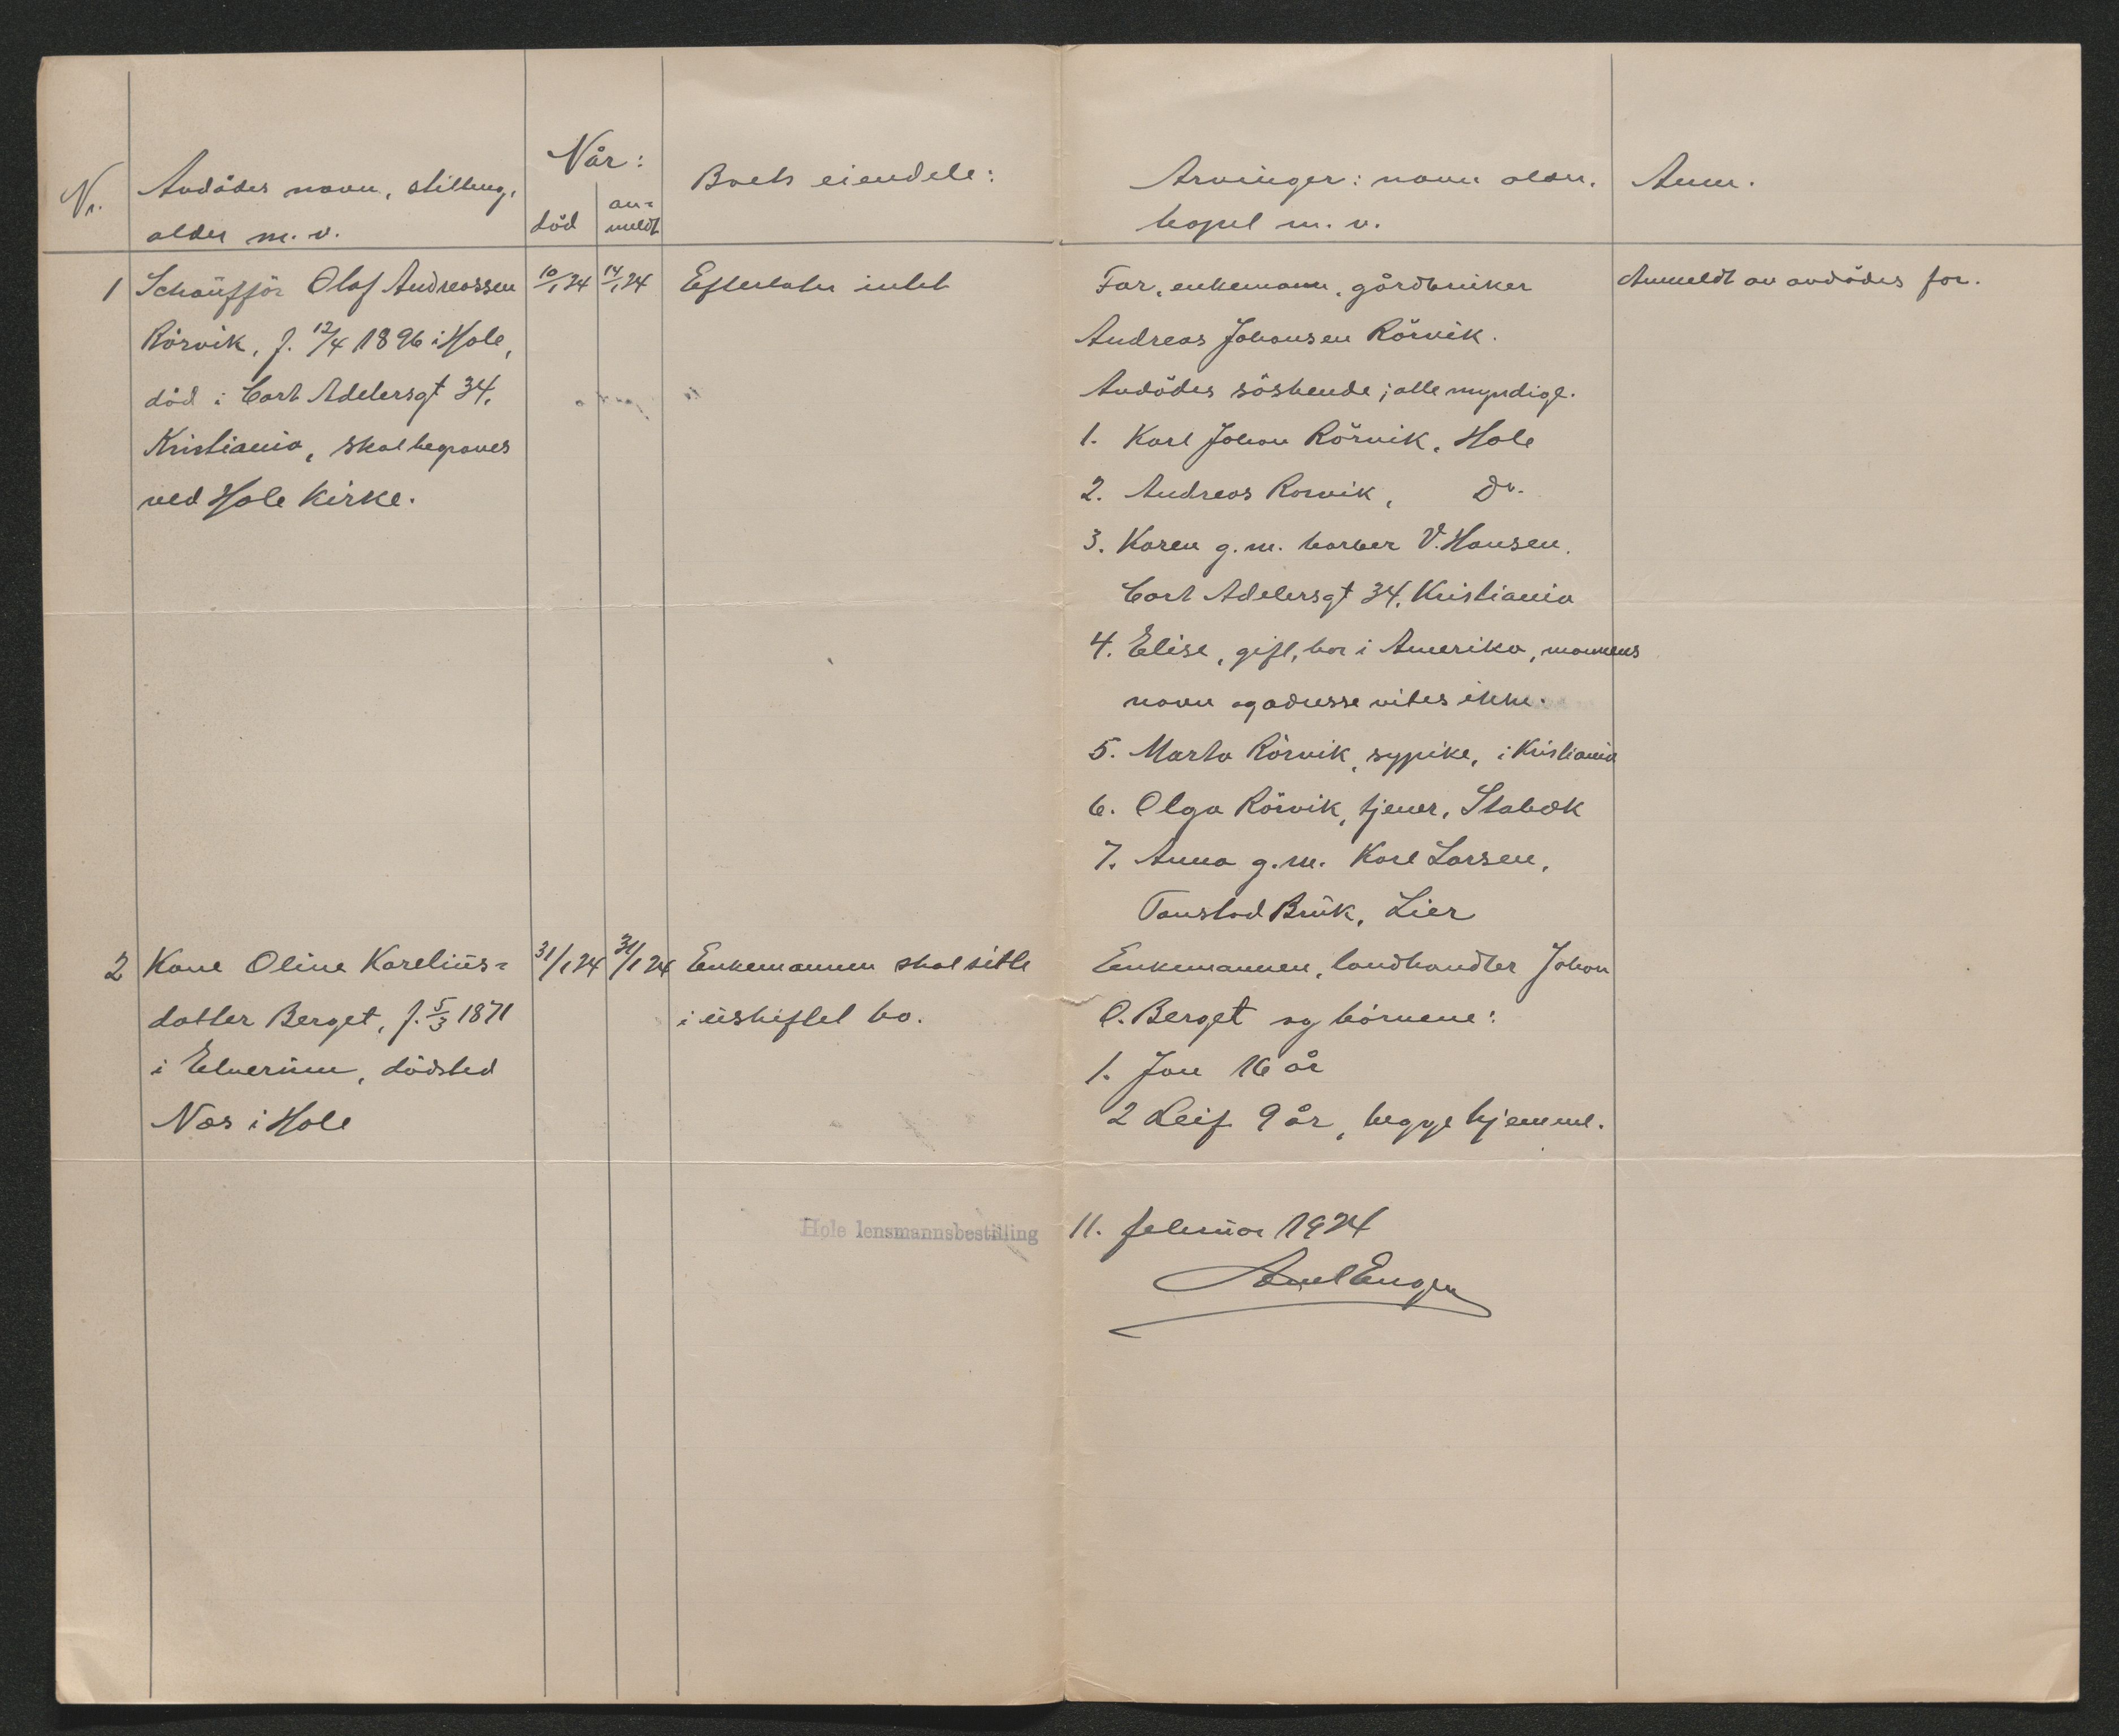 Nr.
Avdødes navn, stilling,
alder m. v.
Når:
død
an-
meldt
Boets eiendele:
Arvinger: navn alder,
bopel m. v.
Anm.
1
Schauffør Olaf Andreassen
Rørvik, f. 12/4 1896 i Hole,
død i Cort Adelersgt 34,
Kristiania, skal begraves
ved Hole Kirke.
10/1 24
14/1 24
Efterlater intet
Far, enkemann, gårdbruker
Andreas Johansen Rørvik.
Avdødes søskende; alle myndige.
1. Karl Johan Rørvik, Hole
2. Andreas Rørvik, Do.
3. Karen g.m. barber V. Hansen,
Cort Adelersgt 34, Kristiania
4. Elise, gift, bor i Amerika, mannens
navn og adresse vites ikke.
5. Marta Rørvik, sypike, i Kristiania
6. Olga Rørvik, tjener, Stabæk
7. Anna g.m. Karl Larsen,
Tanstad Bruk, Lier
Anmeldt av avdødes far.
2
Kone Oline Karelius-
datter Berget, f. 5/3 1871
i Elverum, dødsted
Næs i Hole
31/1 24
31/1 24
Enkemannen skal sitte
i uskiftet bo.
Enkemannen, landhandler Johan
O. Berget og børnene:
1. Jon 16 år
2 Leif 9 år, begge hjemme.
Hole lensmannsbestilling
11. februar 1924